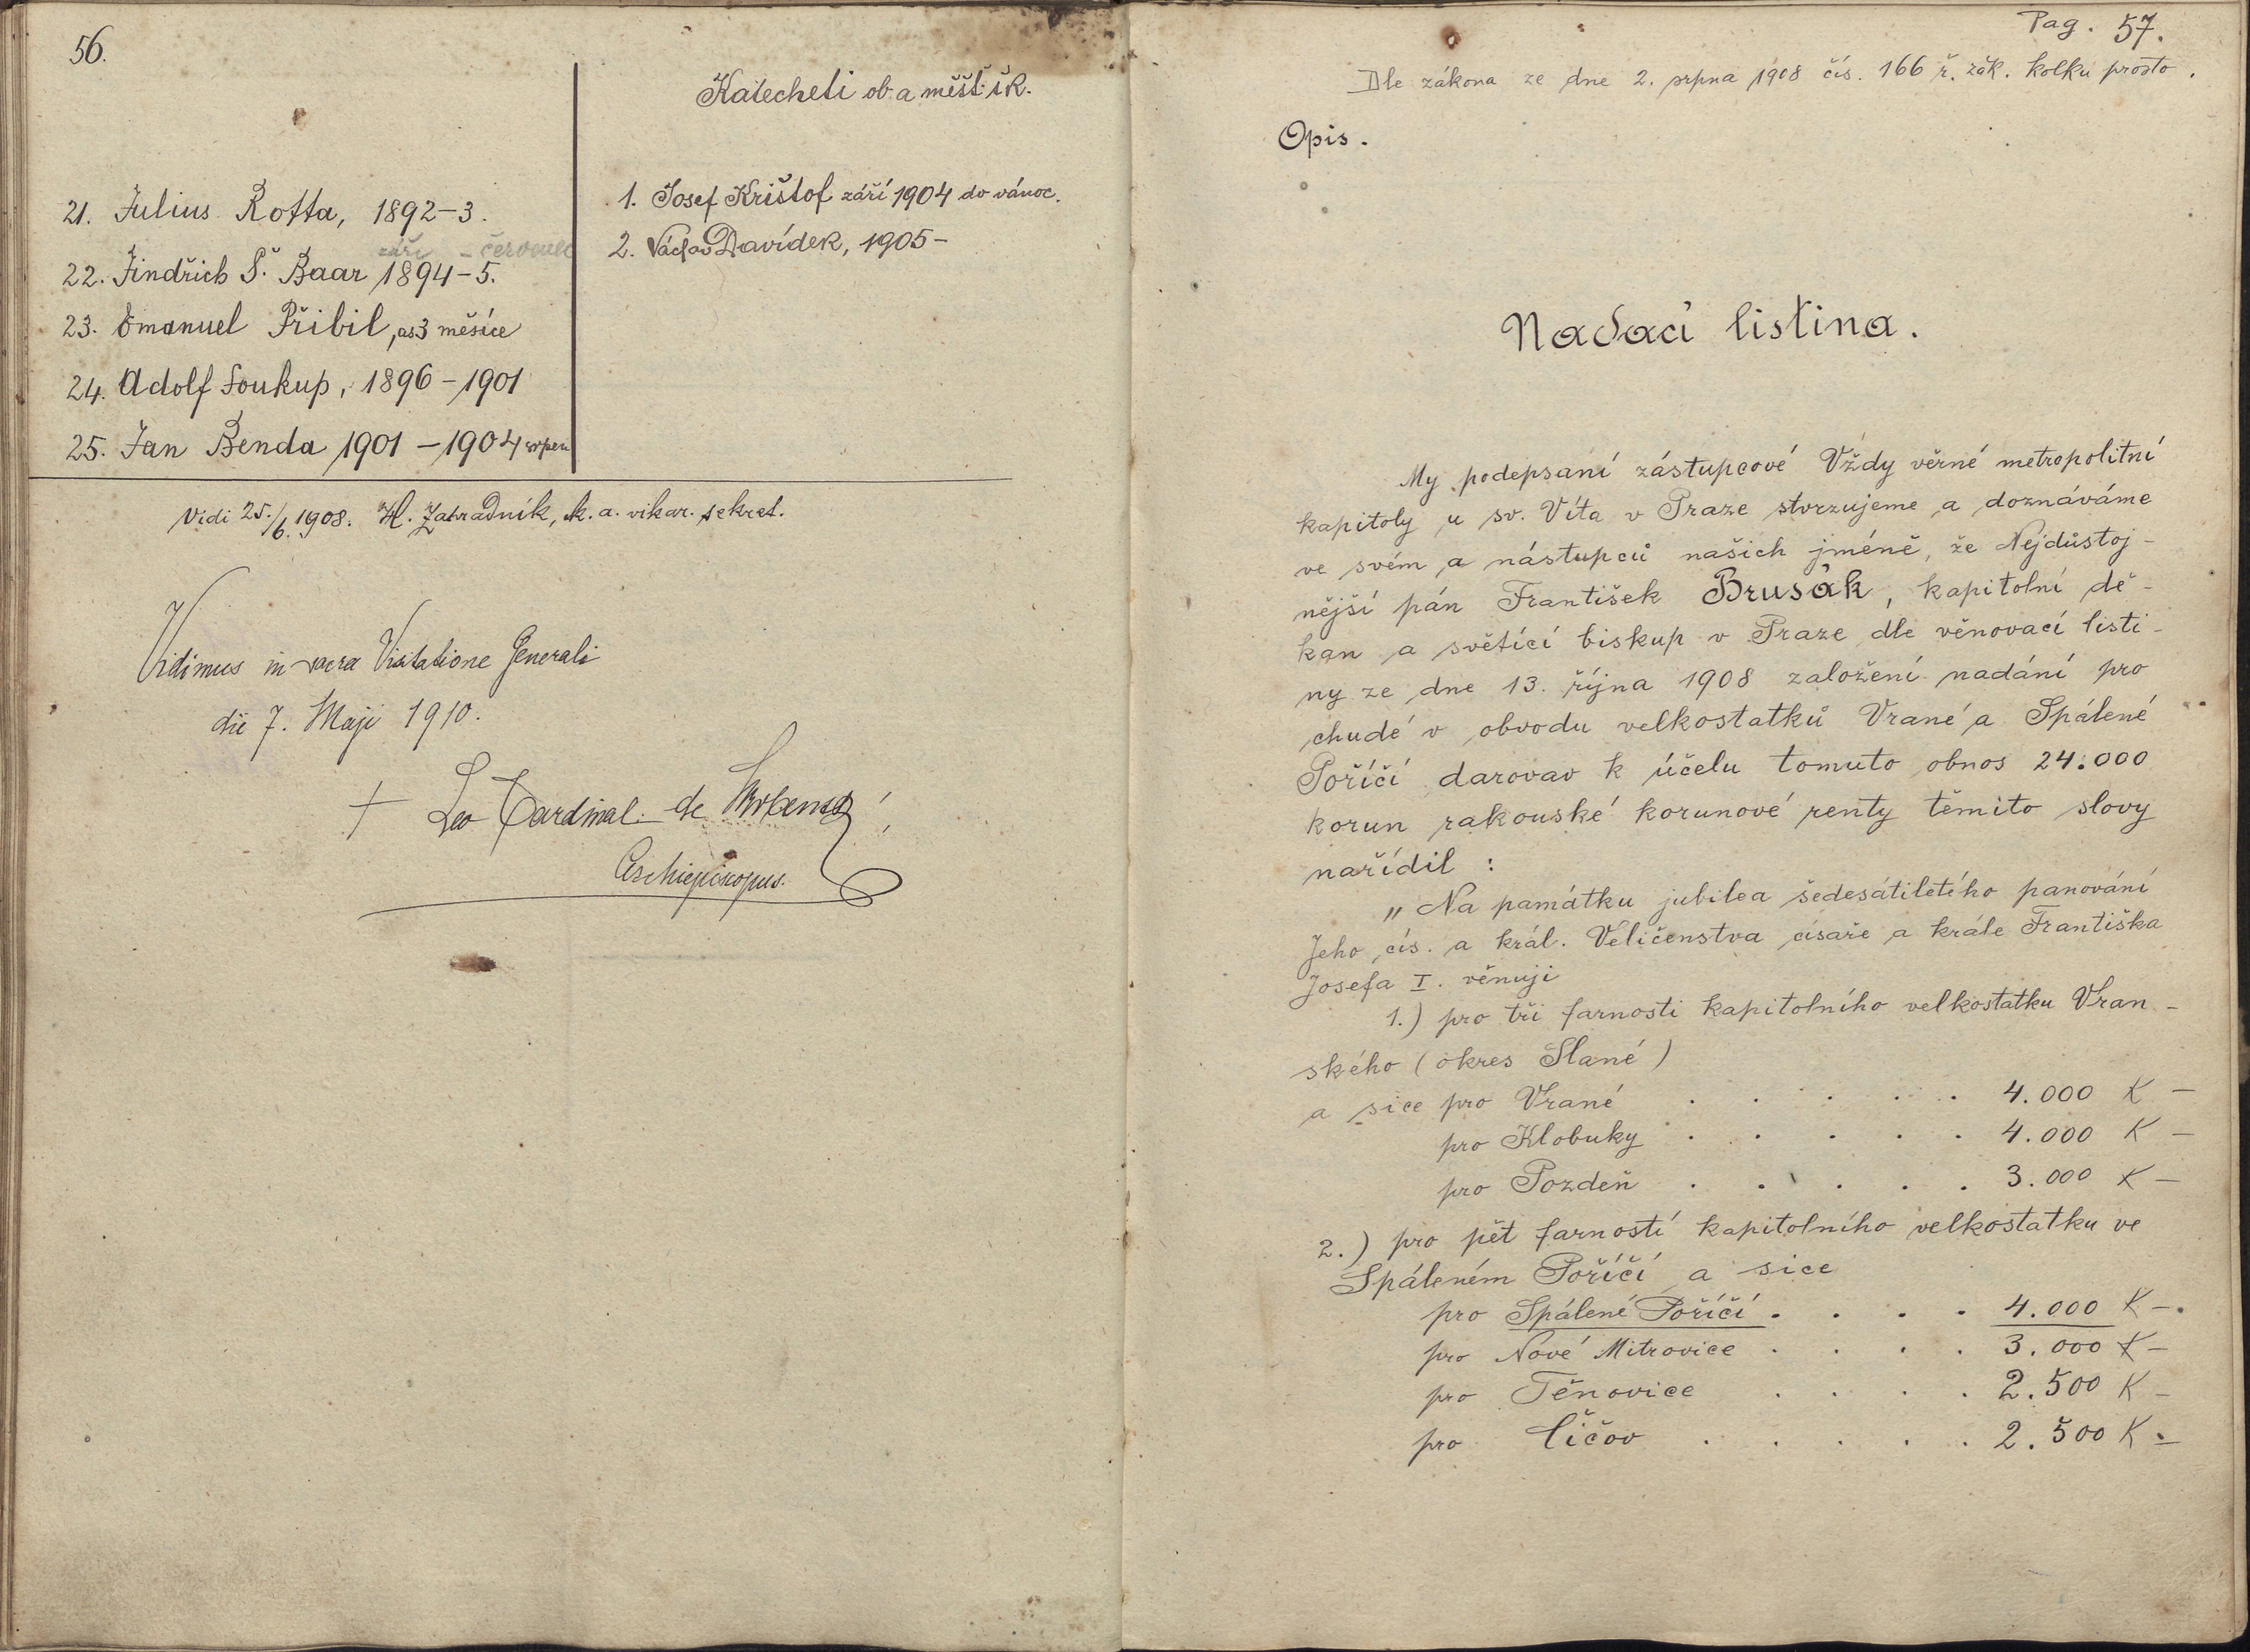 56.
Katecheti ob. a měšť. šk.
21. Julius Rotta, 1892-3.
září - červenec
22. Jindřich Š. Baar 1894-5.
23. Emanuel Přibil, as 3 měsíce
24. Adolf Soukup, 1896-1901
25. Jan Benda 1901-1904 srpen
1. Josef Krištof září 1904 do vánoc.
2. Václav Davídek, 1905-
Vidi 25./6. 1908. H. Zahradník, k. a. vikar. sekret.
Vidimus in sacra Visitatione Generali
die 7. Maji 1910.
+ Leo Cardinal. de Skrbensky
Archiepiscopus.
Pag. 57.
Dle zákona ze dne 2. srpna 1908 čís. 166 ř. zák. kolku prosto.
Opis.
Nadací listina.
My podepsaní zástupcové Vždy věrné metropolitní
kapitoly u sv. Víta v Praze stvrzujeme a doznáváme
ve svém a nástupců našich jméně, že Nejdůstoj-
nější pán František Brusák, kapitolní dě-
kan a světící biskup v Praze dle věnovací listi-
ny ze dne 13. října 1908 založení nadání pro
chudé v obvodu velkostatků Vrané a Spálené
Poříčí darovav k účelu tomuto obnos 24.000
korun rakouské korunové renty těmito slovy
nařídil :
„Na památku jubilea šedesátiletého panování
Jeho cís. a král. Veličenstva císaře a krále Františka
Josefa I. věnuji
1.) pro tři farnosti kapitolního velkostatku Vran-
ského (okres Slané)
a sice pro Vrané . . . . . 4.000 K -
pro Klobuky . . . . . 4.000 K -
pro Pozdeň . . . . . 3.000 K -
2.) pro pět farností kapitolního velkostatku ve
Spáleném Poříčí a sice
pro Spálené Poříčí . . . . 4.000 K -.
pro Nové Mitrovice . . . . 3.000 K -
pro Těnovice . . . . 2.500 K -
pro Číčov . . . . . 2.500 K -